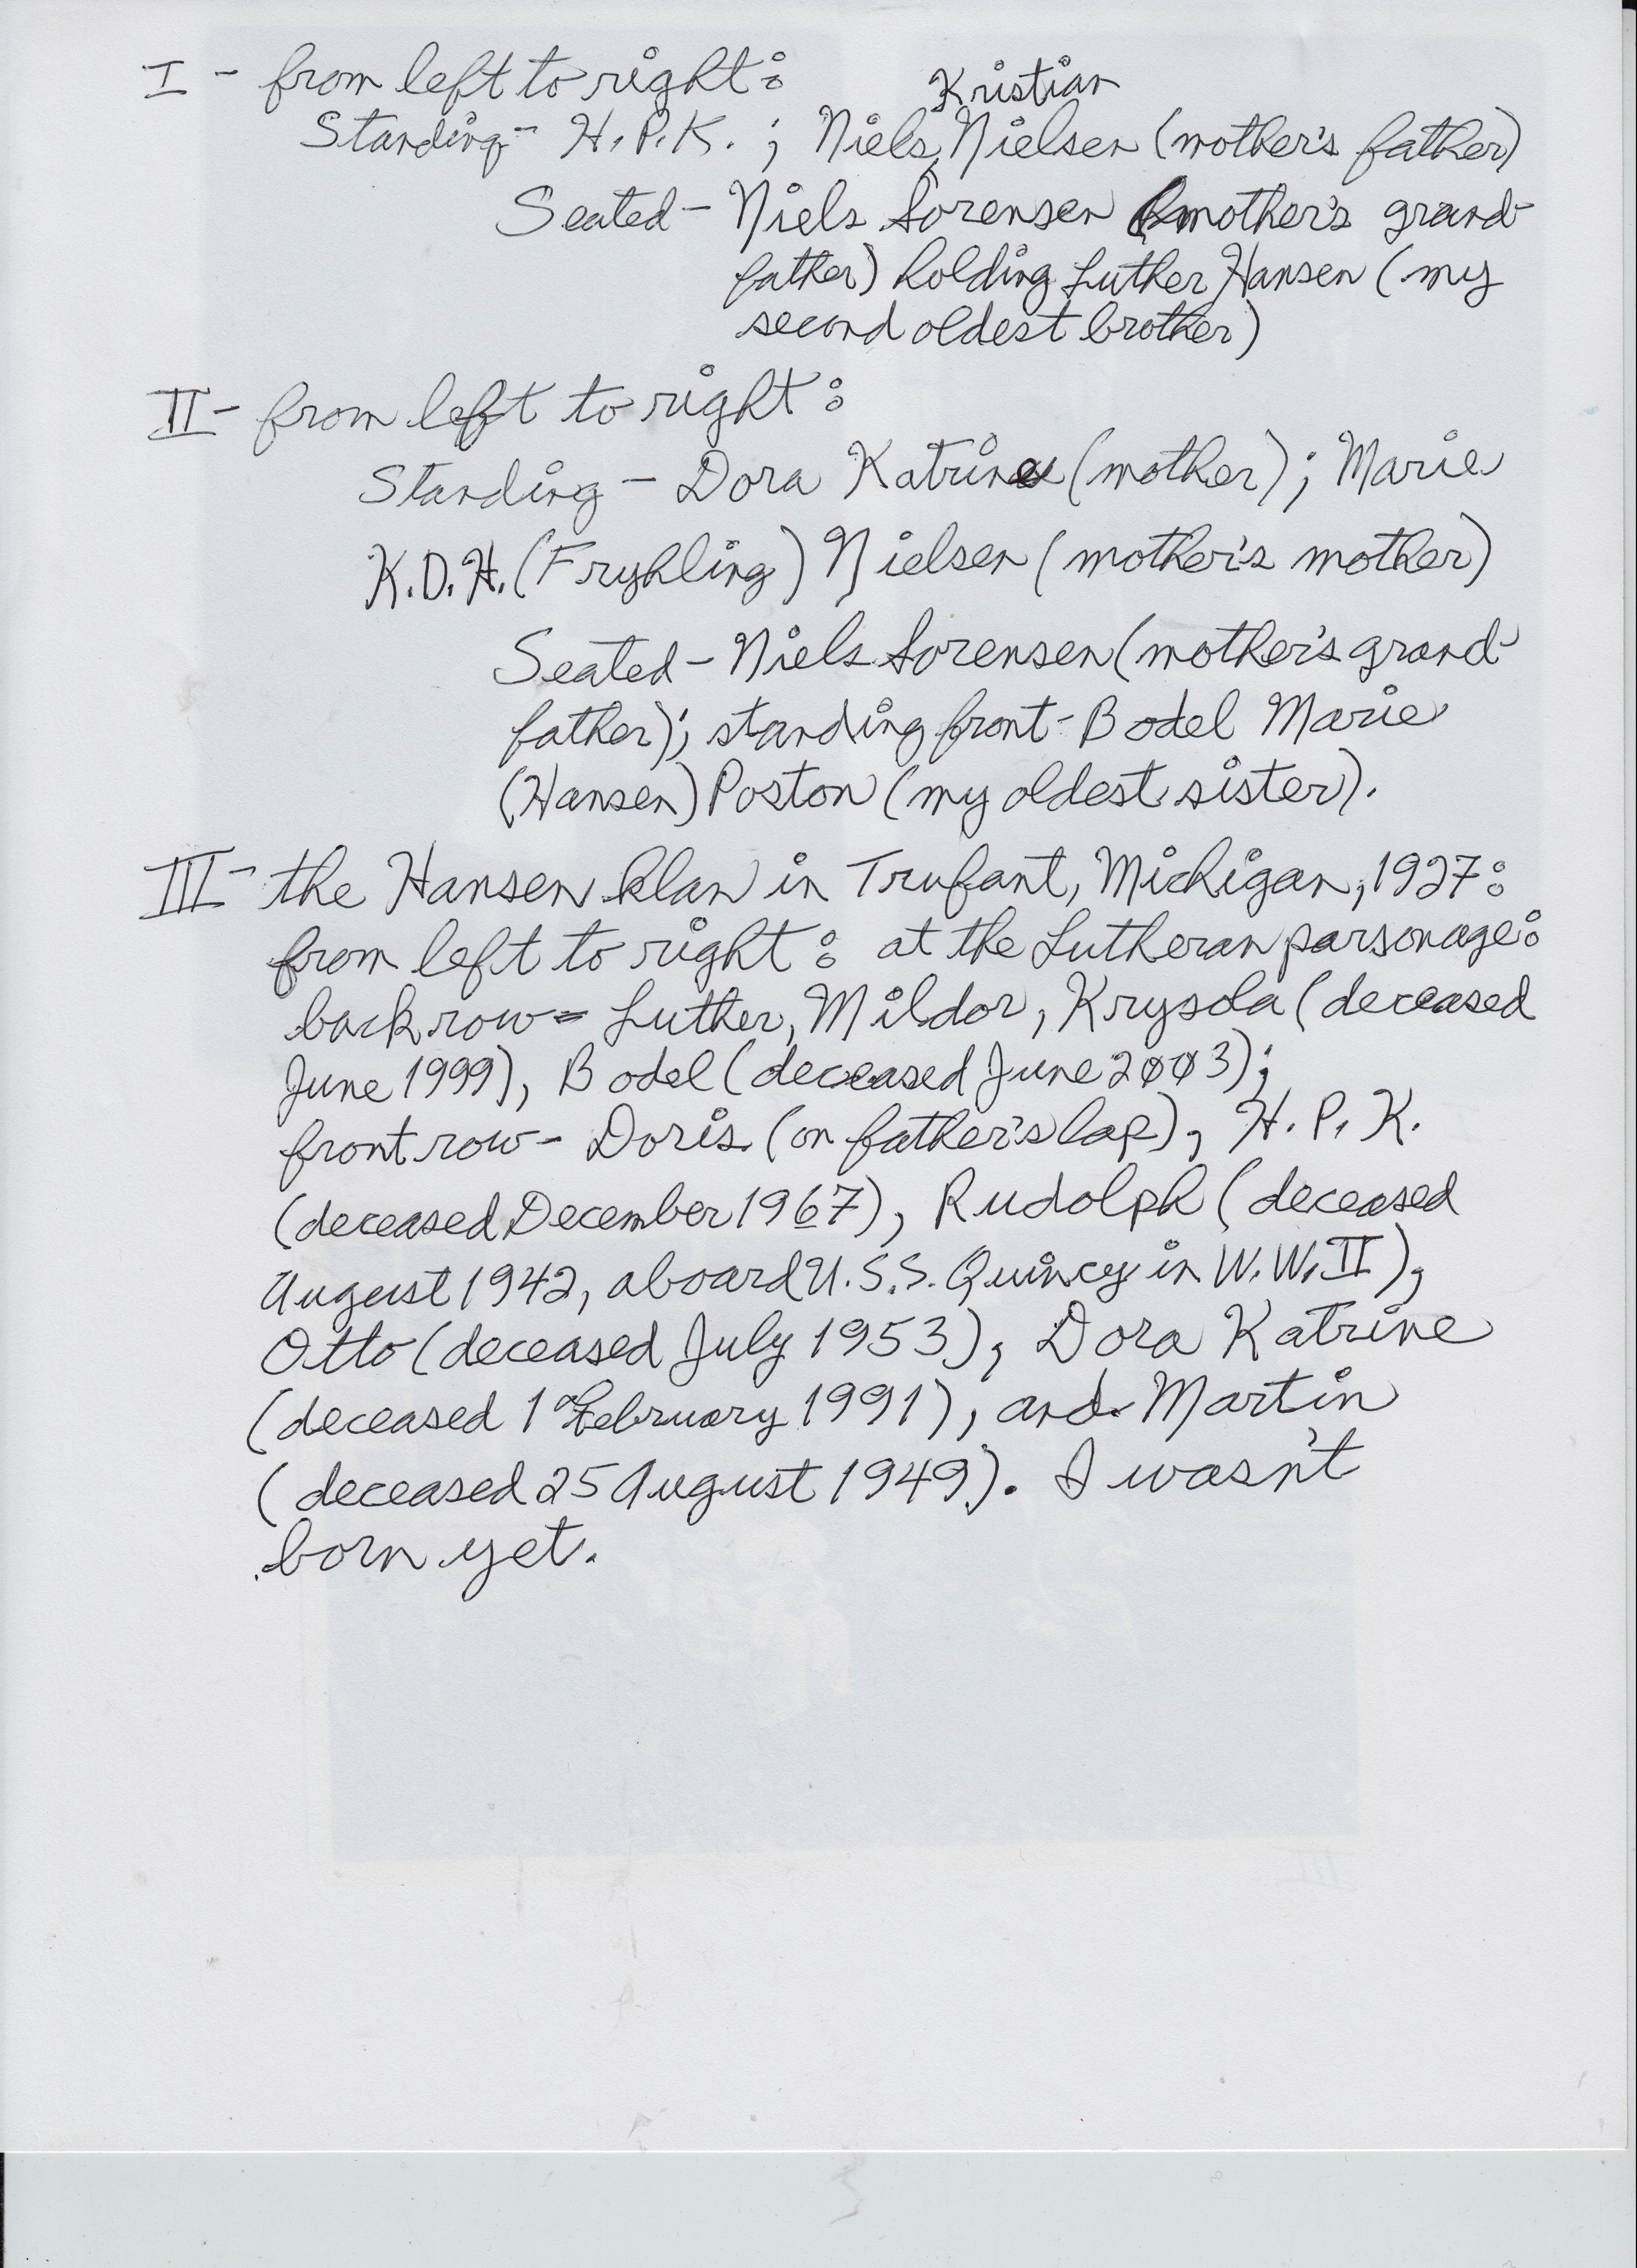 I - from left to right:
Kristian
Standing - H.P.K. ; Niels Nielsen (mother's father)
Seated - Niels Sorensen (mother's grand-
father) holding Luther Hansen (my
second oldest brother)
II - from left to right:
Standing - Dora Katrine (mother); Marie
K.D.H. (Fryhling) Nielsen (mother's mother)
Seated - Niels Sorensen (mother's grand-
father); standing front - Bodel Marie
(Hansen) Poston (my oldest sister).
III - the Hansen klan in Trufant, Michigan, 1927:
from left to right: at the Lutheran parsonage:
back row = Luther, Mildor, Krysola (deceased
June 1999), Bodel (deceased June 2003);
front row - Doris (on father's lap), H.P.K.
(deceased December 1967), Rudolph (deceased
August 1942, aboard U.S.S. Quincy in W.W.II),
Otto (deceased July 1953), Dora Katrine
(deceased 1 February 1991), and Martin
(deceased 25 August 1949). I wasn't
born yet.
III